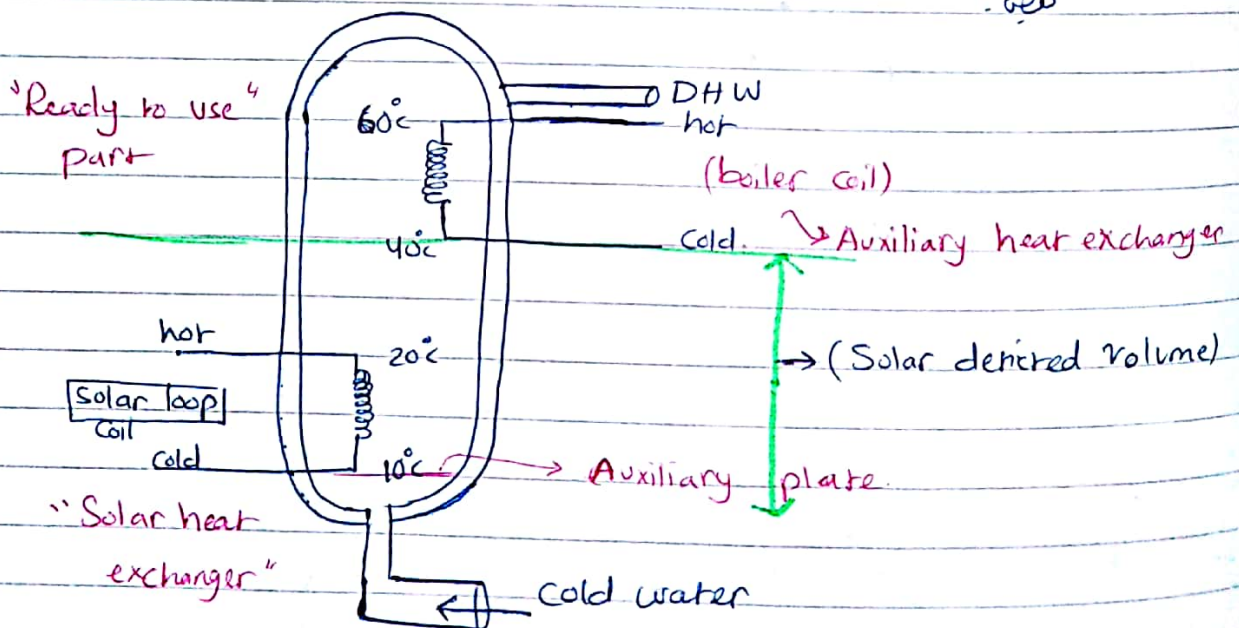 "Ready to use"
part
60°c
DHW
hot
(boiler coil)
40°c
cold.
Auxiliary heat exchanger
hot
20°c
(Solar denired volume)
Solar loop
Coil
Cold
10°c
Auxiliary plate.
"Solar heat
exchanger"
Cold water